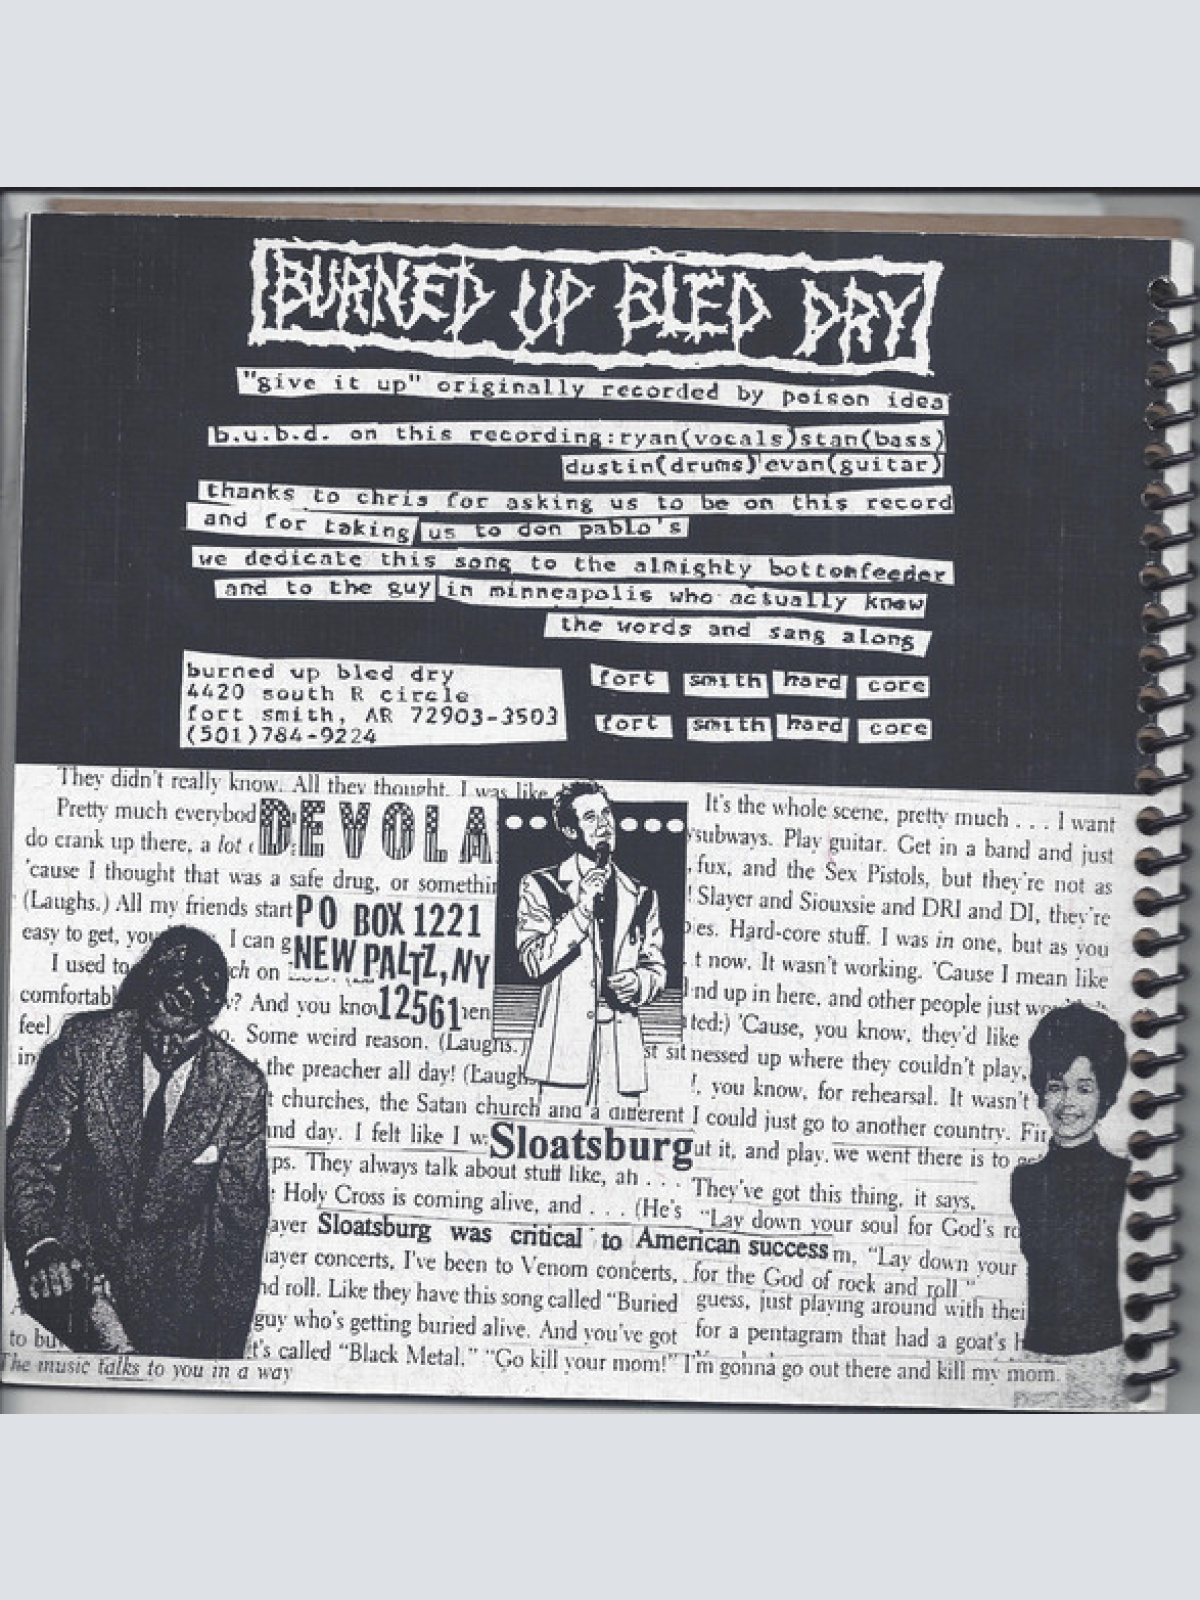 BURNED UP BLED DRY
"give it up" originally recorded by poison idea
b.u.b.d. on this recording:ryan(vocals)stan(bass)
dustin(drums)evan(guitar)
thanks to chris for asking us to be on this record
and for taking us to don pablo's
we dedicate this song to the almighty bottomfeeder
and to the guy in minneapolis who actually knew
the words and sang along
burned up bled dry
4420 south R circle
fort smith, AR 72903-3503
(501)784-9224
fort smith hard core
fort smith hard core
They didn't really know. All they thought. I was like
Pretty much everybod
do crank up there, a lot
'cause I thought that was a safe drug, or somethin
(Laughs.) All my friends start
easy to get, you I can g
I used to ch on
comfortabl ? And you know hen
feel o. Some weird reason. (Laughs.)
in the preacher all day! (Laugh
t churches, the Satan church and a different
nd day. I felt like I w
ps. They always talk about stuff like, ah . . .
Holy Cross is coming alive, and . . . (He's
ayer
ayer concerts, I've been to Venom concerts,
nd roll. Like they have this song called "Buried
guy who's getting buried alive. And you've got
to bu t's called "Black Metal." "Go kill your mom!"
The music talks to you in a way
DEVOLA
PO BOX 1221
NEW PALTZ, NY
12561
Sloatsburg
Sloatsburg was critical to American success
It's the whole scene, pretty much . . . I want
subways. Play guitar. Get in a band and just
fux, and the Sex Pistols, but they're not as
! Slayer and Siouxsie and DRI and DI, they're
es. Hard-core stuff. I was in one, but as you
t now. It wasn't working. 'Cause I mean like
nd up in here, and other people just
ted:) 'Cause, you know, they'd like
st sit nessed up where they couldn't play,
!, you know, for rehearsal. It wasn't
I could just go to another country. Fir
ut it, and play. we went there is to
They've got this thing, it says,
"Lay down your soul for God's ro
m, "Lay down your
for the God of rock and roll."
guess, just playing around with thei
for a pentagram that had a goat's h
I'm gonna go out there and kill my mom.